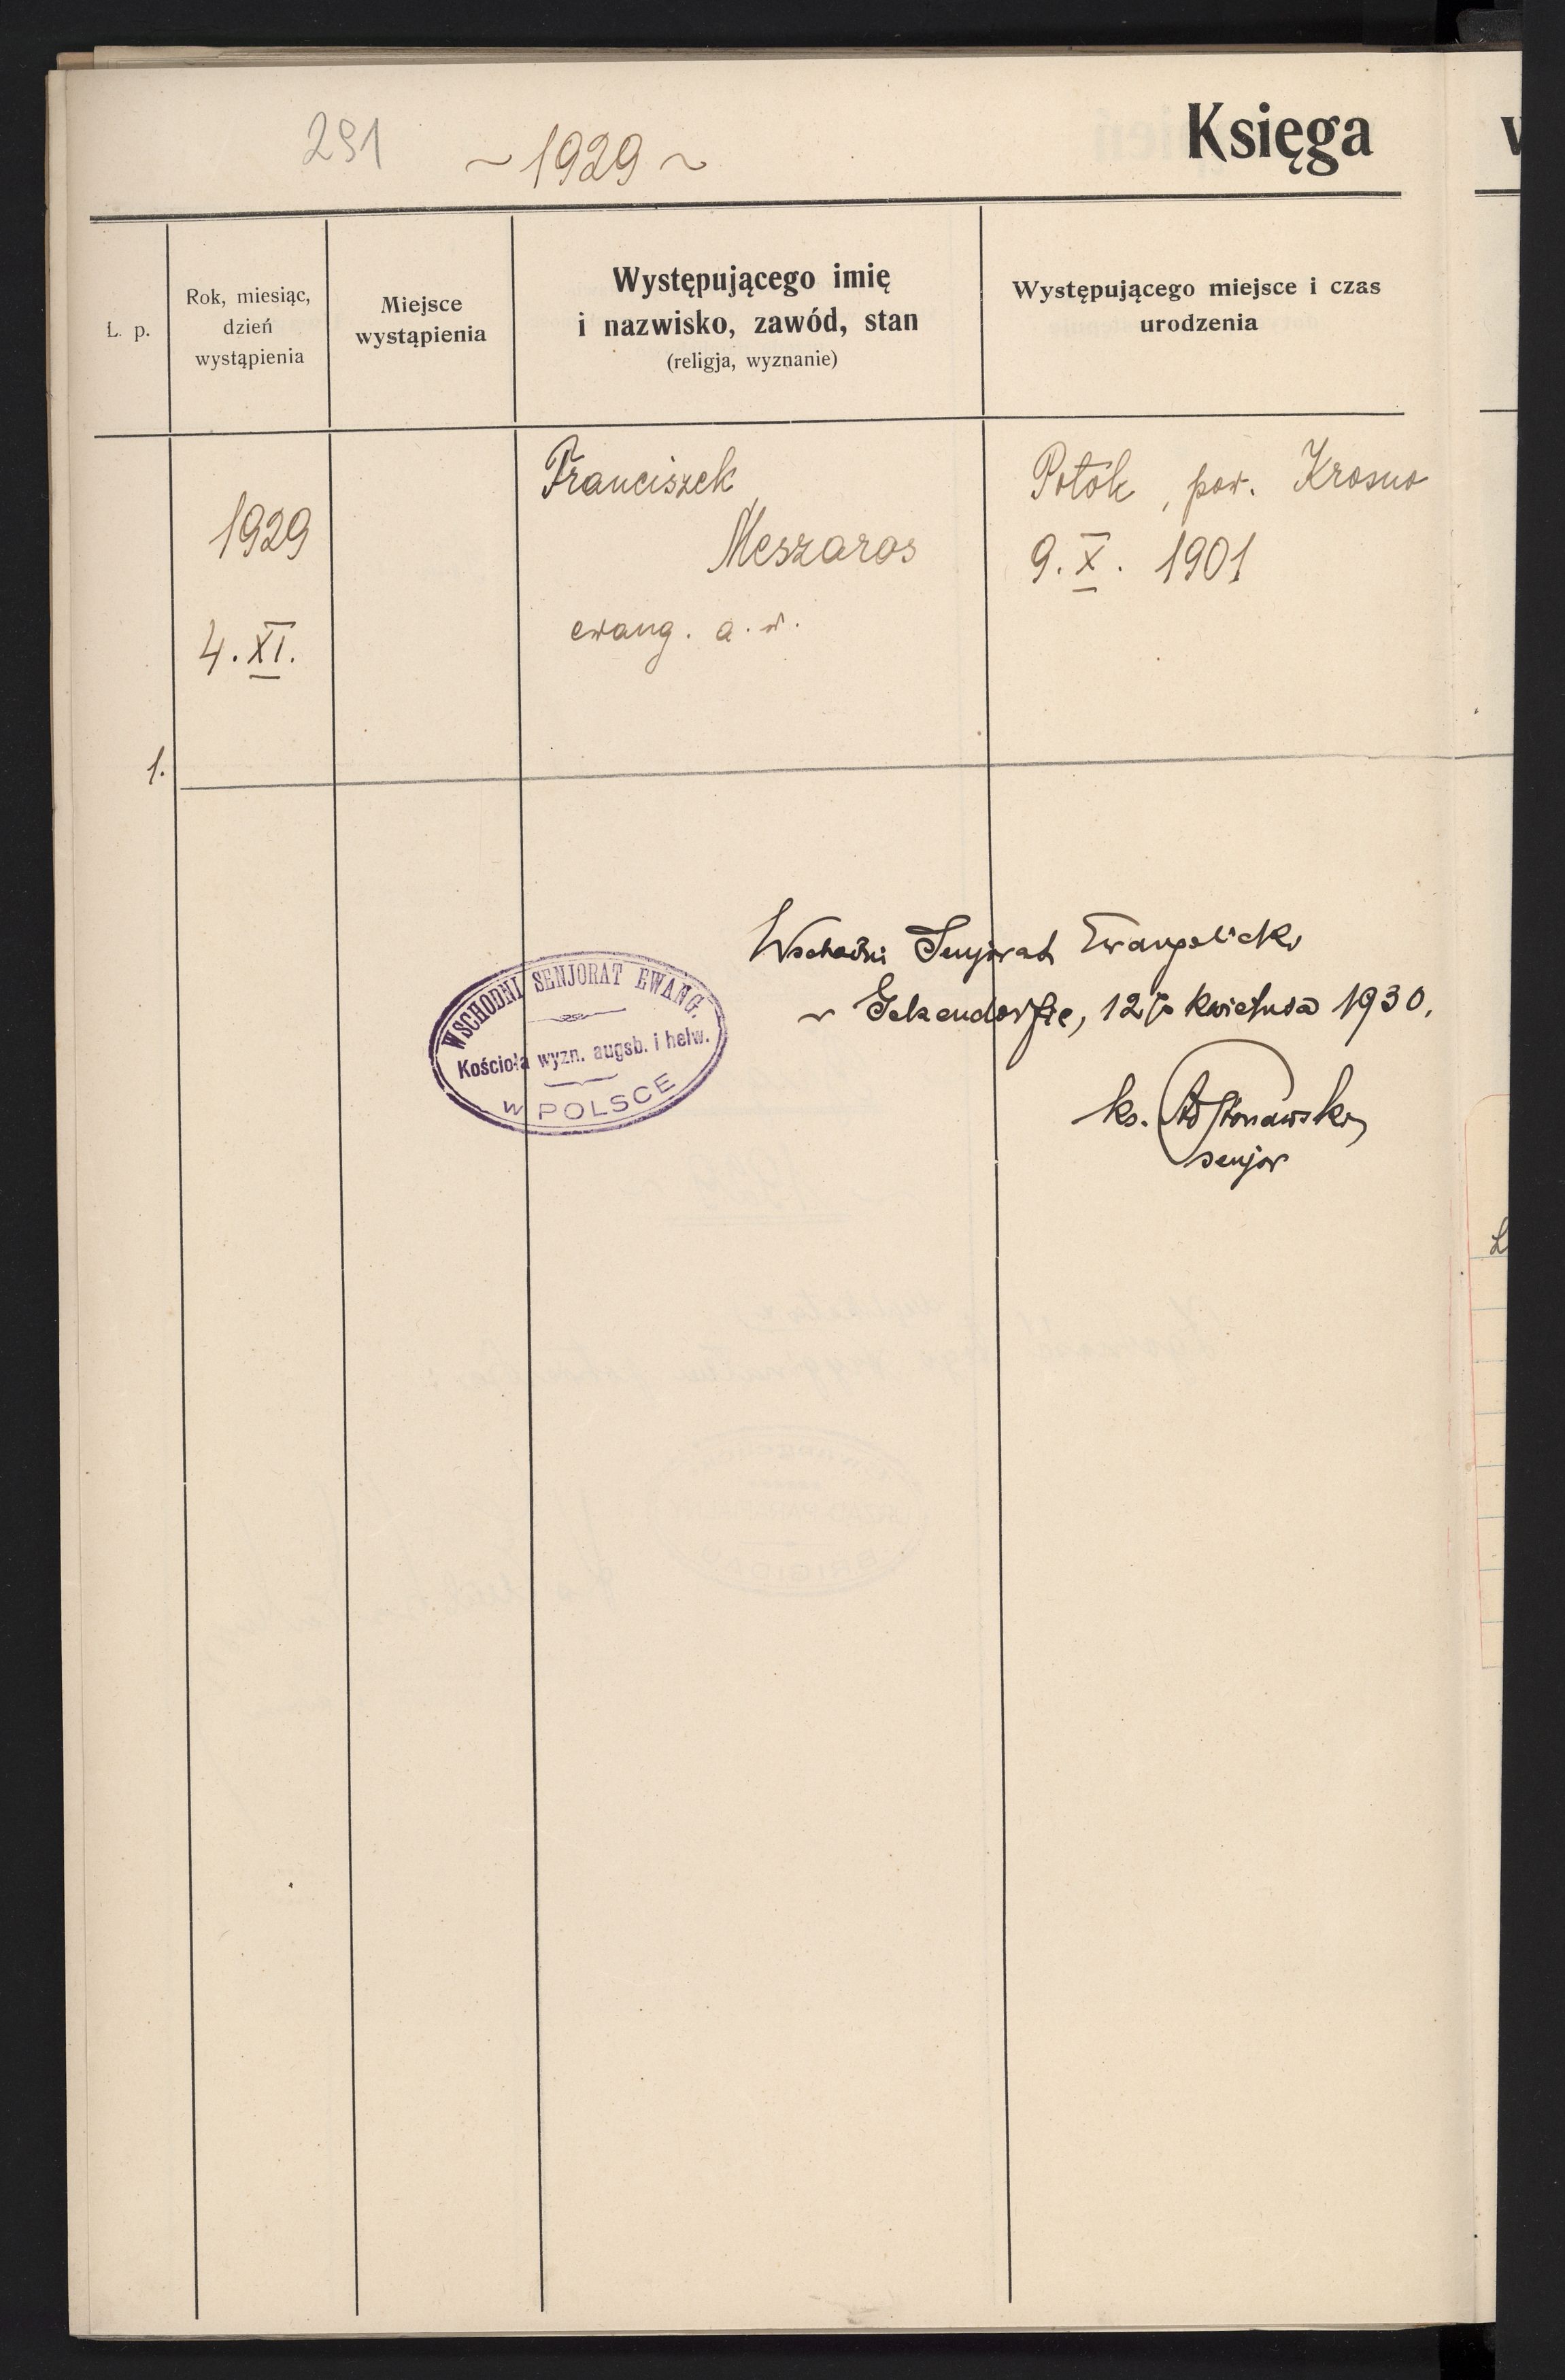 291
~ 1929 ~
Księga
L. p.
Rok, miesiąc,
dzień
wystąpienia
Miejsce
wystąpienia
Występującego imię
i nazwisko, zawód, stan
(religja, wyznanie)
Występującego miejsce i czas
urodzenia
1.
1929
4. XI.
Franciszek
Meszaros
ewang. a. w.
Potok, pow. Krosno
9. X. 1901
Wschodni Senjorat Ewangelicki
w Gelsendorfie, 12/ kwietnia 1930.
ks.
senjor
WSCHODNI SENJORAT EWANG.
Kościoła wyzn. augsb. i helw.
w POLSCE